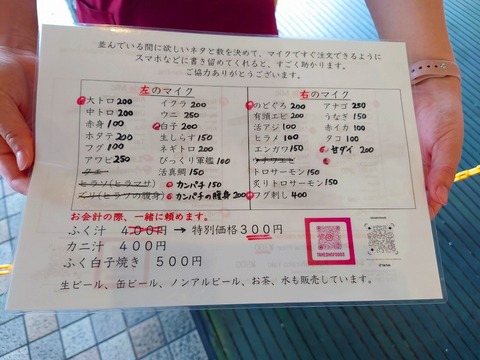 並んでいる間に欲しいネタと数を決めて、マイクですぐ注文できるように
スマホなどに書き留めてくれると、すごく助かります。
ご協力ありがとうございます。
左のマイク
大トロ 200 イクラ 200
中トロ 200 ウニ 250
赤身 100 白子 200
ホタテ 200 生しらす 150
フグ 100 ネギトロ 200
アワビ 250 びっくり軍艦 100
クエ 活真鯛 150
ヒラソ(ヒラマサ) カンパチ 150
ズリ(ヒラソの腹身) カンパチの腹身 200
右のマイク
のどぐろ 200 アナゴ 250
有頭エビ 200 うなぎ 150
活アジ 100 赤イカ 100
ヒラメ 100 タコ 100
エンガワ 150 甘ダイ 200
トロサーモン 150
炙りトロサーモン 150
フグ刺し 400
お会計の際、一緒に頼めます。
ふく汁 400円 → 特別価格300円
カニ汁 400円
ふく白子焼き 500円
TAKEZOFOODS
生ビール、缶ビール、ノンアルビール、お茶、水も販売しています。